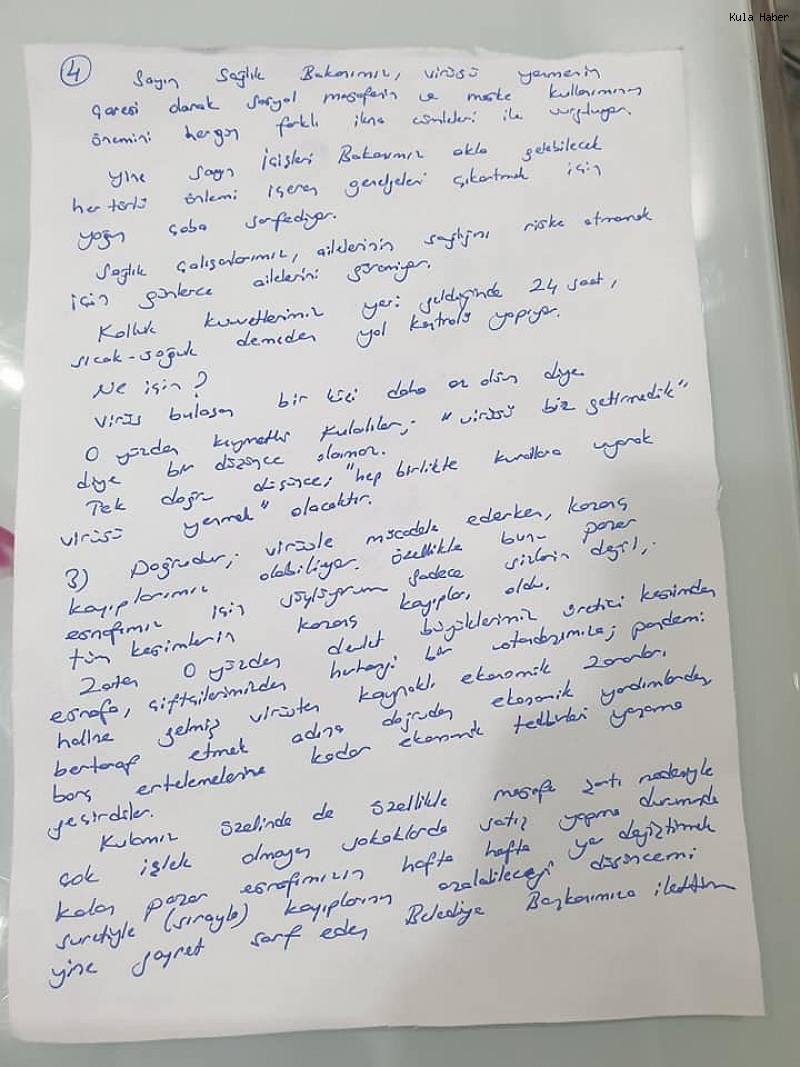 Kula Haber
4
Sayın Sağlık Bakanımız, virüsü yenmenin
çaresi olarak sosyal mesafenin ve maske kullanımının
önemini hergün farklı ikna cümleleri ile vurguluyor.
Yine sayın İçişleri Bakanımız akla gelebilecek
her türlü önlemi içeren genelgeleri çıkartmak için
yoğun çaba sarfediyor.
Sağlık çalışanlarımız, ailelerinin sağlığını riske atmamak
için günlerce ailelerini göremiyor.
Kolluk kuvvetlerimiz yeri geldiğinde 24 saat,
sıcak-soğuk demeden yol kontrolü yapıyor.
Ne için?
Virüs bulaşan bir kişi daha az olsun diye.
O yüzden kıymetli Kulalılar; "virüsü biz getirmedik"
diye bir düşünce olamaz.
Tek doğru düşünce; "hep birlikte kurallara uyarak
virüsü yenmek" olacaktır.
3) Doğrudur; virüsle mücadele ederken, kazanç
kayıplarımız olabiliyor. Özellikle bunu pazar
esnafımız için söylüyorum sadece sizlerin değil;
tüm kesimlerin kazanç kayıpları oldu.
Zaten O yüzden devlet büyüklerimiz üretici kesimden
esnafa, çiftçilerimizden herhangi bir vatandaşımıza; pandemi
haline gelmiş virüsten kaynaklı ekonomik zararları
bertaraf etmek adına doğrudan ekonomik yardımlardan,
borç ertelemelerine kadar ekonomik tedbirleri yaşama
geçirdiler.
Kulamız özelinde de özellikle mesafe şartı nedeniyle
çok işlek olmayan sokaklarda satış yapma durumunda
kalan pazar esnafımızın hafta hafta yer değiştirmek
suretiyle (sırayla) kayıplarının azalabileceği düşüncemi
yine gayret sarf eden Belediye Başkanımıza ilettim